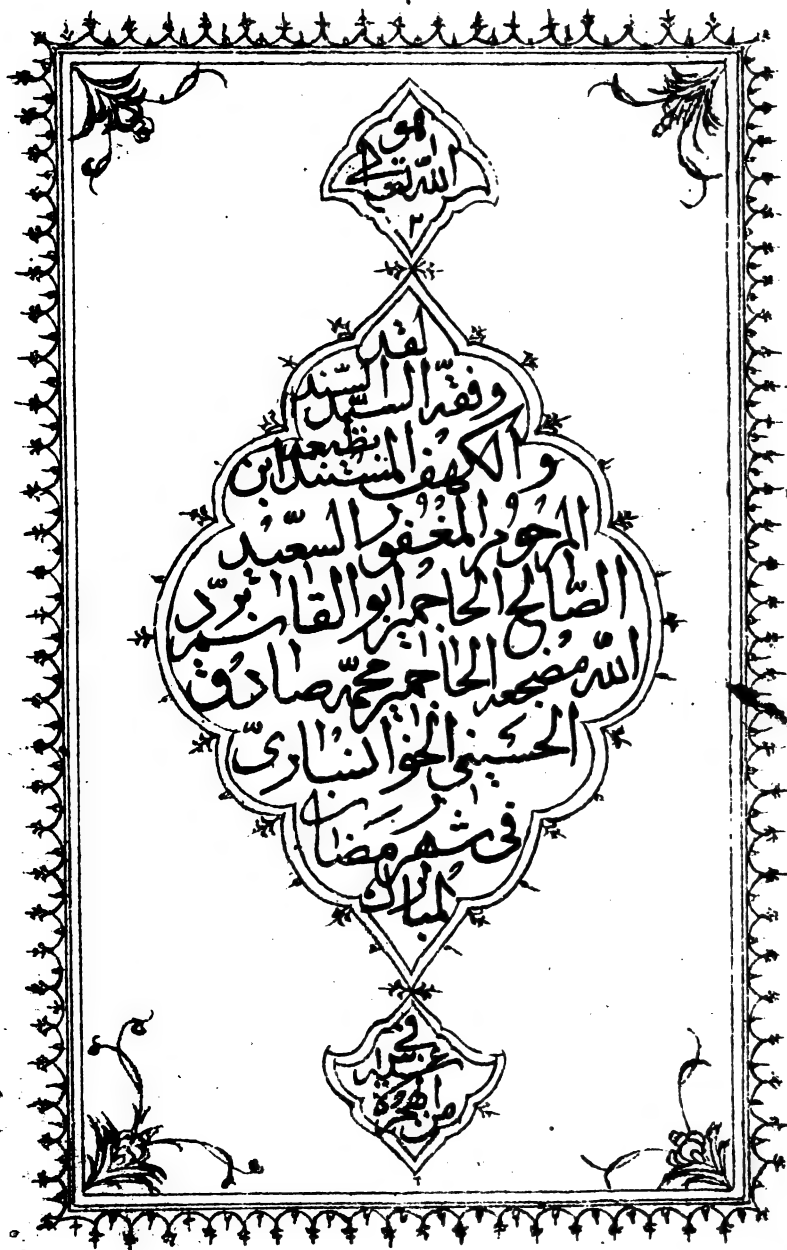 هو
الله تعالى
لقد
وفقه السيد السند
والكهف المستند بطبعه ابن
المرحوم المغفور السعيد
الصالح الحاج مير ابو القاسم برّد
الله مضجعه الحاج مير محمد صادق
الحسيني الخوانساري
في شهر رمضان
المبارك
في
من الهجرة